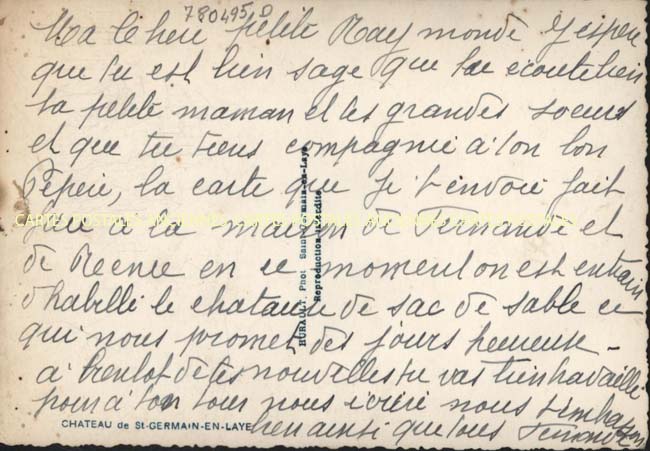 780495 D
Ma Chere petite Raymonde J'espere
que tu est bien sage que tu ecoute bien
ta petite maman et tes grandes soeurs
et que tu tiens compagnie a ton bon
Pepere, la carte que je t'envoie fait
face a la maison de Fernande et
de Renée en ce moment on est entrain
d'habille le chateau de sac de sable ce
qui nous promet des jours heureuse -
a bientot de tes nouvelles tu vas bien travaille
pour a ton tour nous nous t'embrassons
bien ainsi que tous Fernande
CHATEAU de St-GERMAIN-EN-LAYE
HURAULT, Phot Saint-Germain-en-Laye
Reproduction interdite